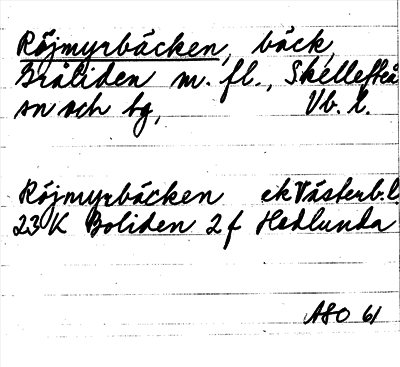 Röjmyrbäcken, bäck,
Bråliden m. fl., Skellefteå
sn och lg, Vb. l.
Röjmyrbäcken ek Västerb. l
23 K Boliden 2 f Hedlunda
ASO 61